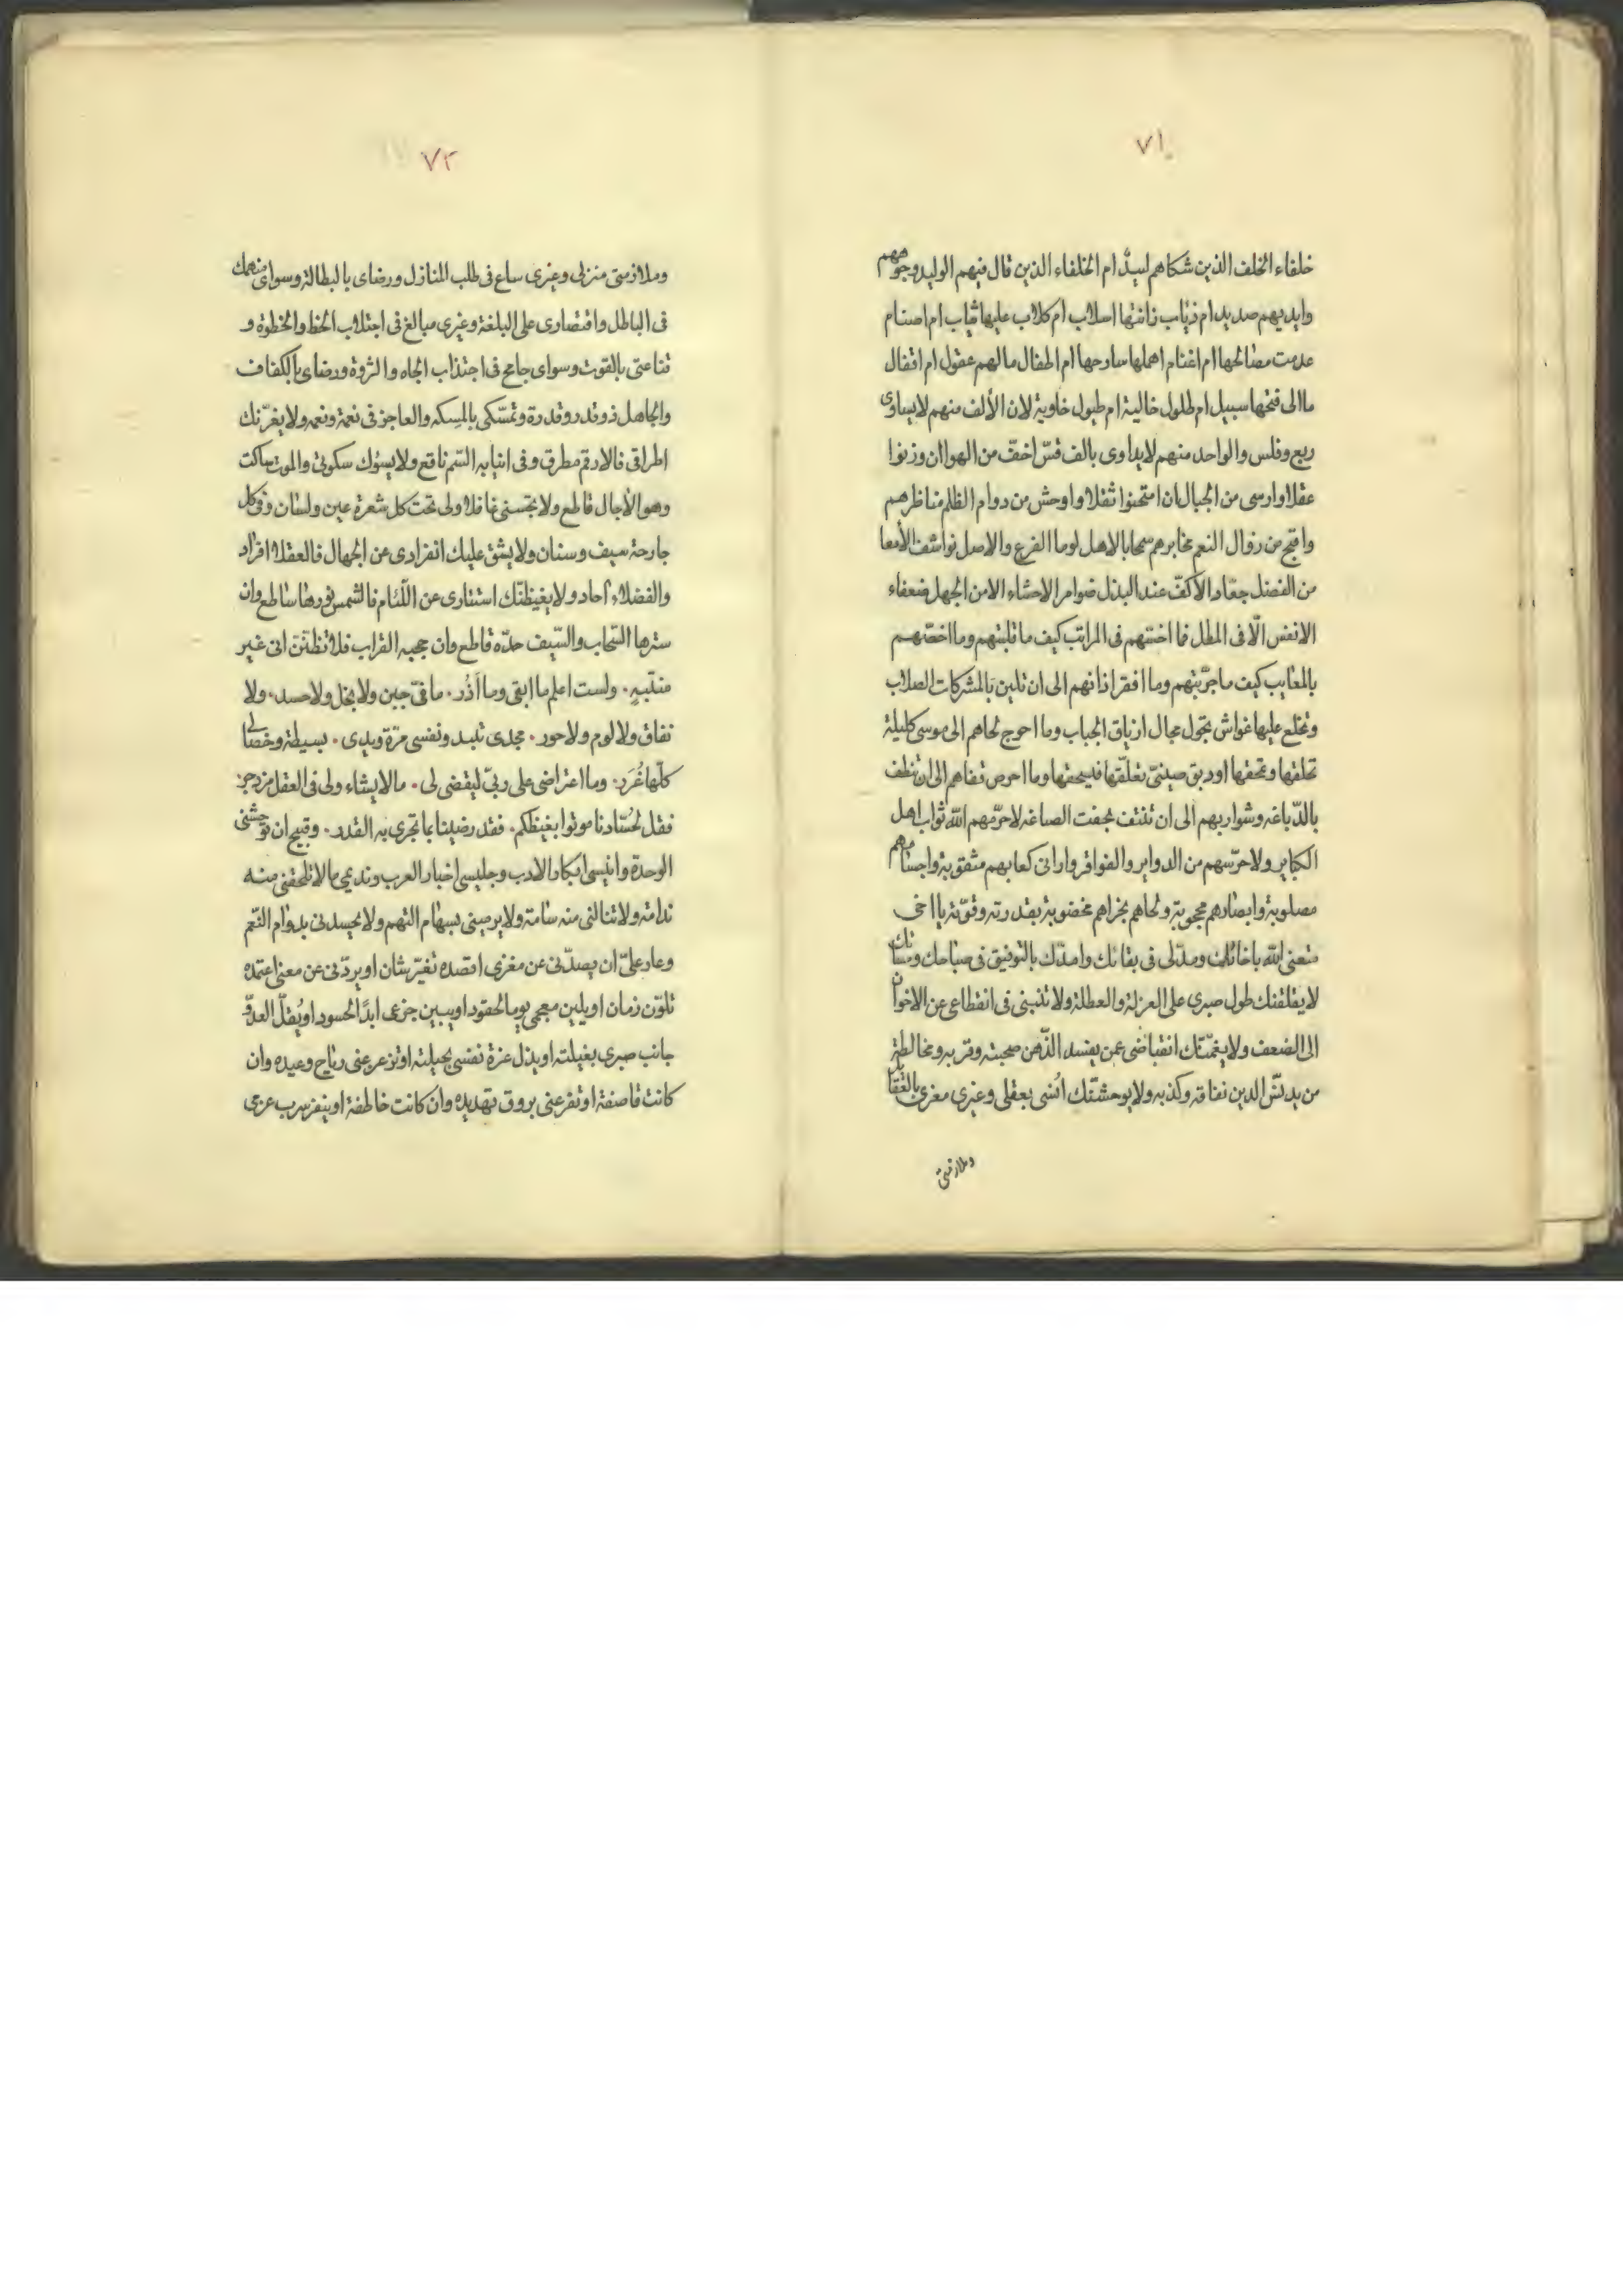 ٧١
خلفاء الخلف الذين شكاهم لبيدٌ ام الخلفاء الذين قال فيهم الوليد وجوههم
وايديهم صديد ام ذياب زانتها اسلاب ام كلاب عليها ثياب ام اصنام
عدمت مصالحها ام اغنام اهملها سارحها ام اطفال مالهم عقول ام اقفال
ما الى فتحها سبيل ام طلول خالية ام طبول خاوية لان الألف منهم لايساوى
ربع وفلس والواحد منهم لايداوى بالف قسّ اخفّ من الهوا ان وزنوا
عقلا وارسى من الجبال ان امتحنوا ثقلا واوحش من دوام الظلم مناظرهم
واقبح من زوال النعم مخابرهم سحابا بالاهل لوما الفرع والاصل نواشف الأمعا
من الفضل جعّاد الاكفّ عند البذل ضوامر الاحشاء الا من الجهل ضعفاء
الانفس الّا فى المطل فما اخسّهم فى المراتب كيف ما قلبتهم وما اخصّهم
بالمعايب كيف ما جرّبتهم وما افقر اذانهم الى ان تلين بالمشركات الصلاب
وتخلع عليها غواش تجول مجال ازياق الجباب وما احوج لحاهم الى موسى كليلة
تحلقها وتمحقها او دبق صينىّ تعلّقها فيسحقها وما احرص قفاهم الى ان تنظف
بالدّباغه وشواربهم الى ان تنتف بجفت الصاغه لاحرّمهم اللّٰه ثواب اهل
الكباير ولاحرّسهم من الدواير والفواقر وارانى كعابهم مثقوبة واجسامهم
مصلوبة وابصارهم محجوبة ولحاهم بخراهم مخضوبة بقدرته وقوّته يا اخى
متعنى اللّٰه باخائك ومدّلى فى بقائك وامدّك بالتوفيق فى صباحك ومسائك
لايقلقنك طول صبرى على العزلة والعطلة ولا تنسبنى فى انقطاعى عن الاخوان
الى الضعف ولا يغمّنّك انقباضى عمن يفسد الذّهن صحبته وقربه ومخالطة
من يدنّس الدين نفاقه وكذبه ولا يوحشنّك انُسى بعقلى وغيرى مغرى بالعقال
وملازمتى
٧٢
وملازمتى منزلى وغيرى ساع فى طلب المنازل ورضاى بالبطالة وسواى منهمك
فى الباطل واقتصارى على البلغة وغيرى مبالغ فى اجتلاب الحظ والحظوة و
قناعتى بالقوت وسواى جامح فى اجتذاب الجاه والثروة ورضاى بالكفاف
والجاهل ذو قدر وقدرة وتمسّكى بالمِسكه والعاجز فى نعمة ونعمه ولا يغرّنك
اطراقى فالارقم مطرق وفى انيابه السّم ناقع ولا يسؤك سكوتى والموت ساكت
وهو الأجال قاطع ولا تحسبنى غافلا ولى تحت كل شعرة عين ولسان وفى كل
جارحة سيف وسنان ولا يشق عليك انفرادى عن الجهال فالعقلا افراد
والفضلاء آحاد ولا يغيظنّك استتارى عن اللّئام فالشمس نورها ساطع وان
سترها السّحاب والسّيف حدّه قاطع وان حجبه القراب فلا تظنّن انى غير
منتبهٍ. ولست اعلم ما ابقى وما أذُر. ما فىّ جبن ولا بخل ولا حسد. ولا
نفاق ولا لوم ولا حور. مجدى تليد ونفسى مرّة ويدى. بسيطة وخصالى
كلّها غُرَر. وما اعتراضى على ربىّ ليقضى لى. ما لا يشاء ولى فى العقل مزدجر
فقل لحُسّادنا موتوا بغيظكم. فقد رضينا بما تجرى به القدر. وقبيح ان توحشنى
الوحدة وانيسى ابكار الادب وجليسى اخبار العرب ونديمى ما لا تلحقنى منه
ندامة ولا تنالنى منه سامة ولا يرمينى بسهام التهم ولا يحسدنى بدوام النّعم
وعار علىّ ان يصدّنى عن مغزى اقصده تغيّر شان او يردّنى عن معنى اعتمده
تلوّن زمان او يلين معجمى يوما لحقود او يبين جزعى ابدًا لحسود او يُقلّ العدوّ
جانب صبرى بغيلته او يذل عزة نفسى بحيلته او تزعزعنى رياح وعيده وان
كانت قاصفة او تفزعنى بروق تهديده وان كانت خاطفة او ينفر سرب عزمى